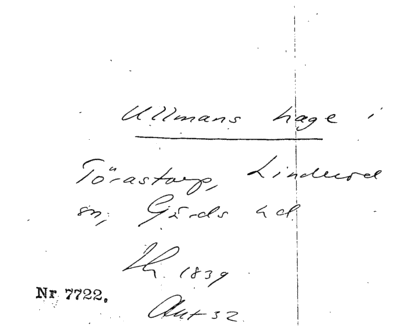 Ullmans hage i
Törastorp, Linderöd
sn, Gärds hd
Th. 1839
Nr 7722.
Akt 32